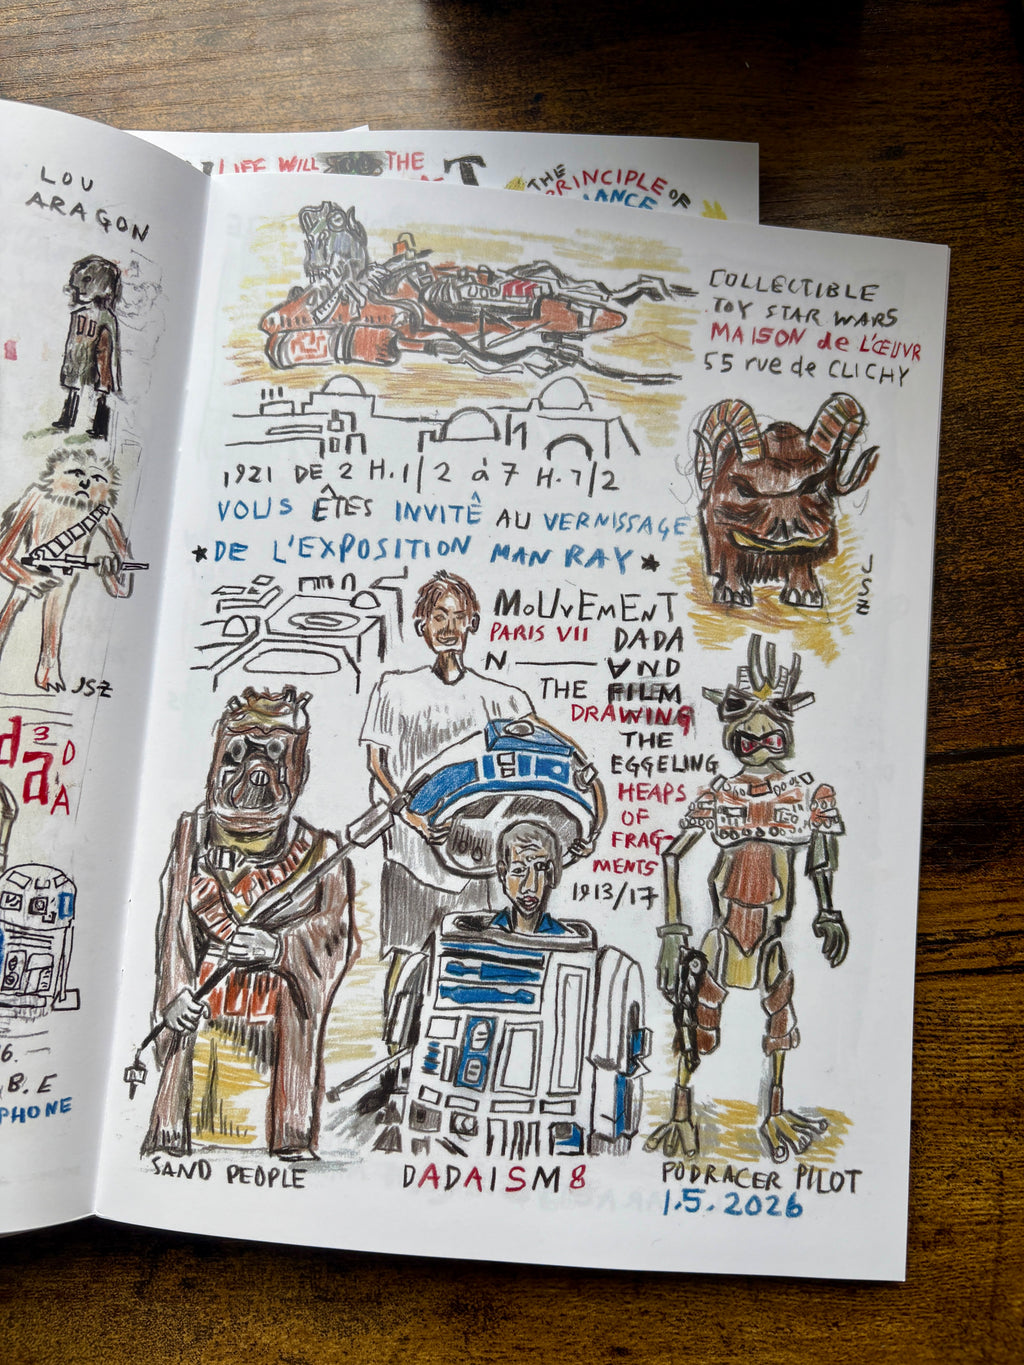 LOU
ARAGON
JSZ
3
D
da
'A
16.
B.E
PHONE
LIFE WILL THE
THE
PRINCIPLE OF
COLLECTIBLE
TOY STAR WARS
MAISON de L'ŒUVR
55 rue de CLICHY
1921 DE 2 H.1/2 à 7 H.1/2
VOUS ÊTES INVITÊ AU VERNISSAGE
★ DE L'EXPOSITION MAN RAY ★
JSZ
MOUVEMENT
PARIS VII DADA
N — AND
THE FILM
DRAWING
THE
EGGELING
HEAPS
OF
FRAG-
MENTS
1913/17
SAND PEOPLE
DADAISM8
PODRACER PILOT
1.5.2026